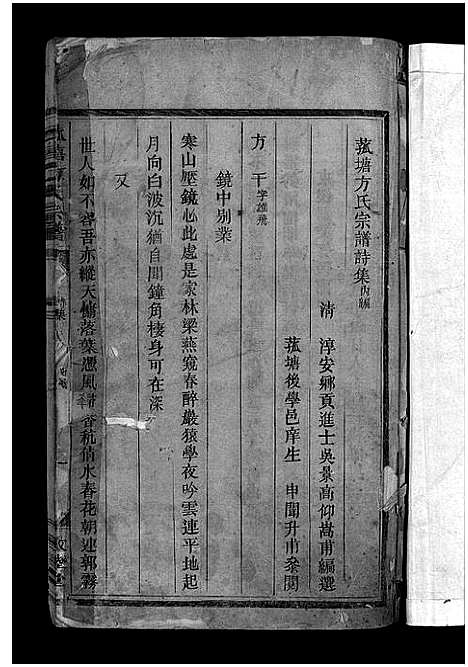 菰塘方氏宗譜詩集內編
清　淳安鄉貢進士吳景高仰嵩甫編選
菰塘後學邑庠生　申聞升甫參閱
方干字雄飛
鏡中別業
寒山壓鏡心此處是家林梁燕窺春醉巖猿學夜吟雲連平地起
月向白波沉猶自聞鐘角棲身可在深
又
世人如不容吾亦縱天慵落葉憑風 香秔倩水舂花朝連郭霧